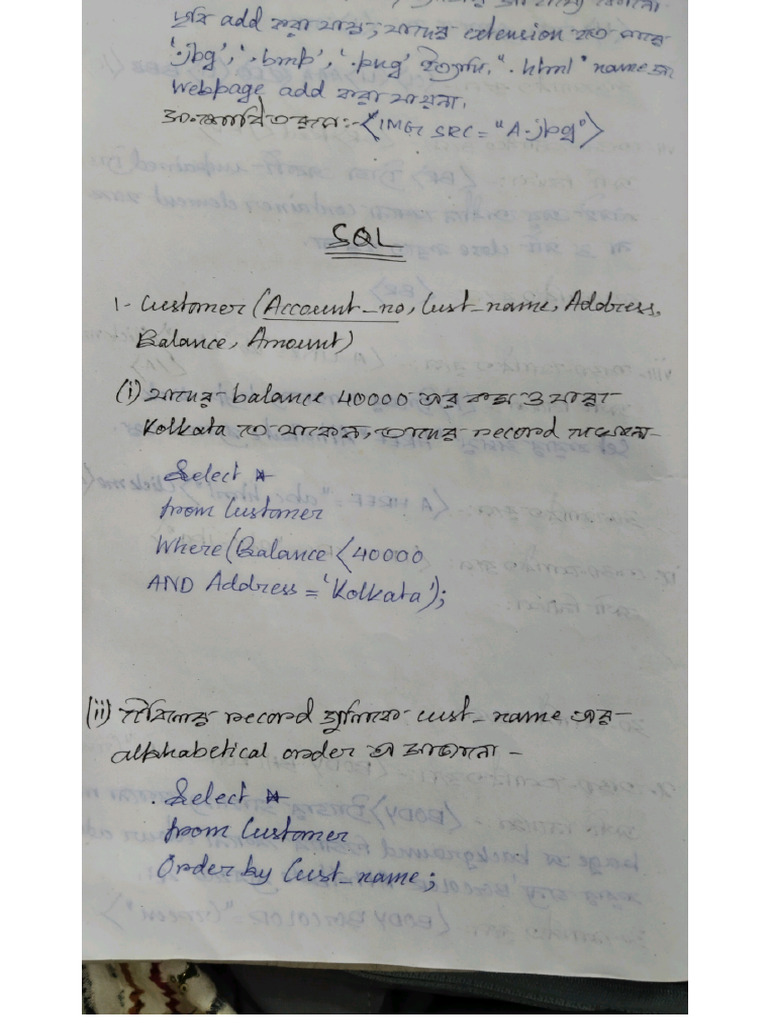 ছবি add করা যায়, যাদের extension হতে পারে
'.jbg', '.bmp', '.png' ইত্যাদি, ".html" name
webpage add করা যায়না,
<IMG SRC = "A.jbg">
SQL
1- Customer (Account_no, Cust_name, Address,
Balance, Amount)
(i) যাদের balance 40000 এর কম ও যারা
Kolkata তে থাকেন, তাদের record
Select *
from Customer
Where (Balance < 40000
AND Address = 'Kolkata');
(ii) টেবিলের record গুলিকে cust_name এর
alphabetical order এ সাজানো -
Select *
from Customer
Order by Cust_name;